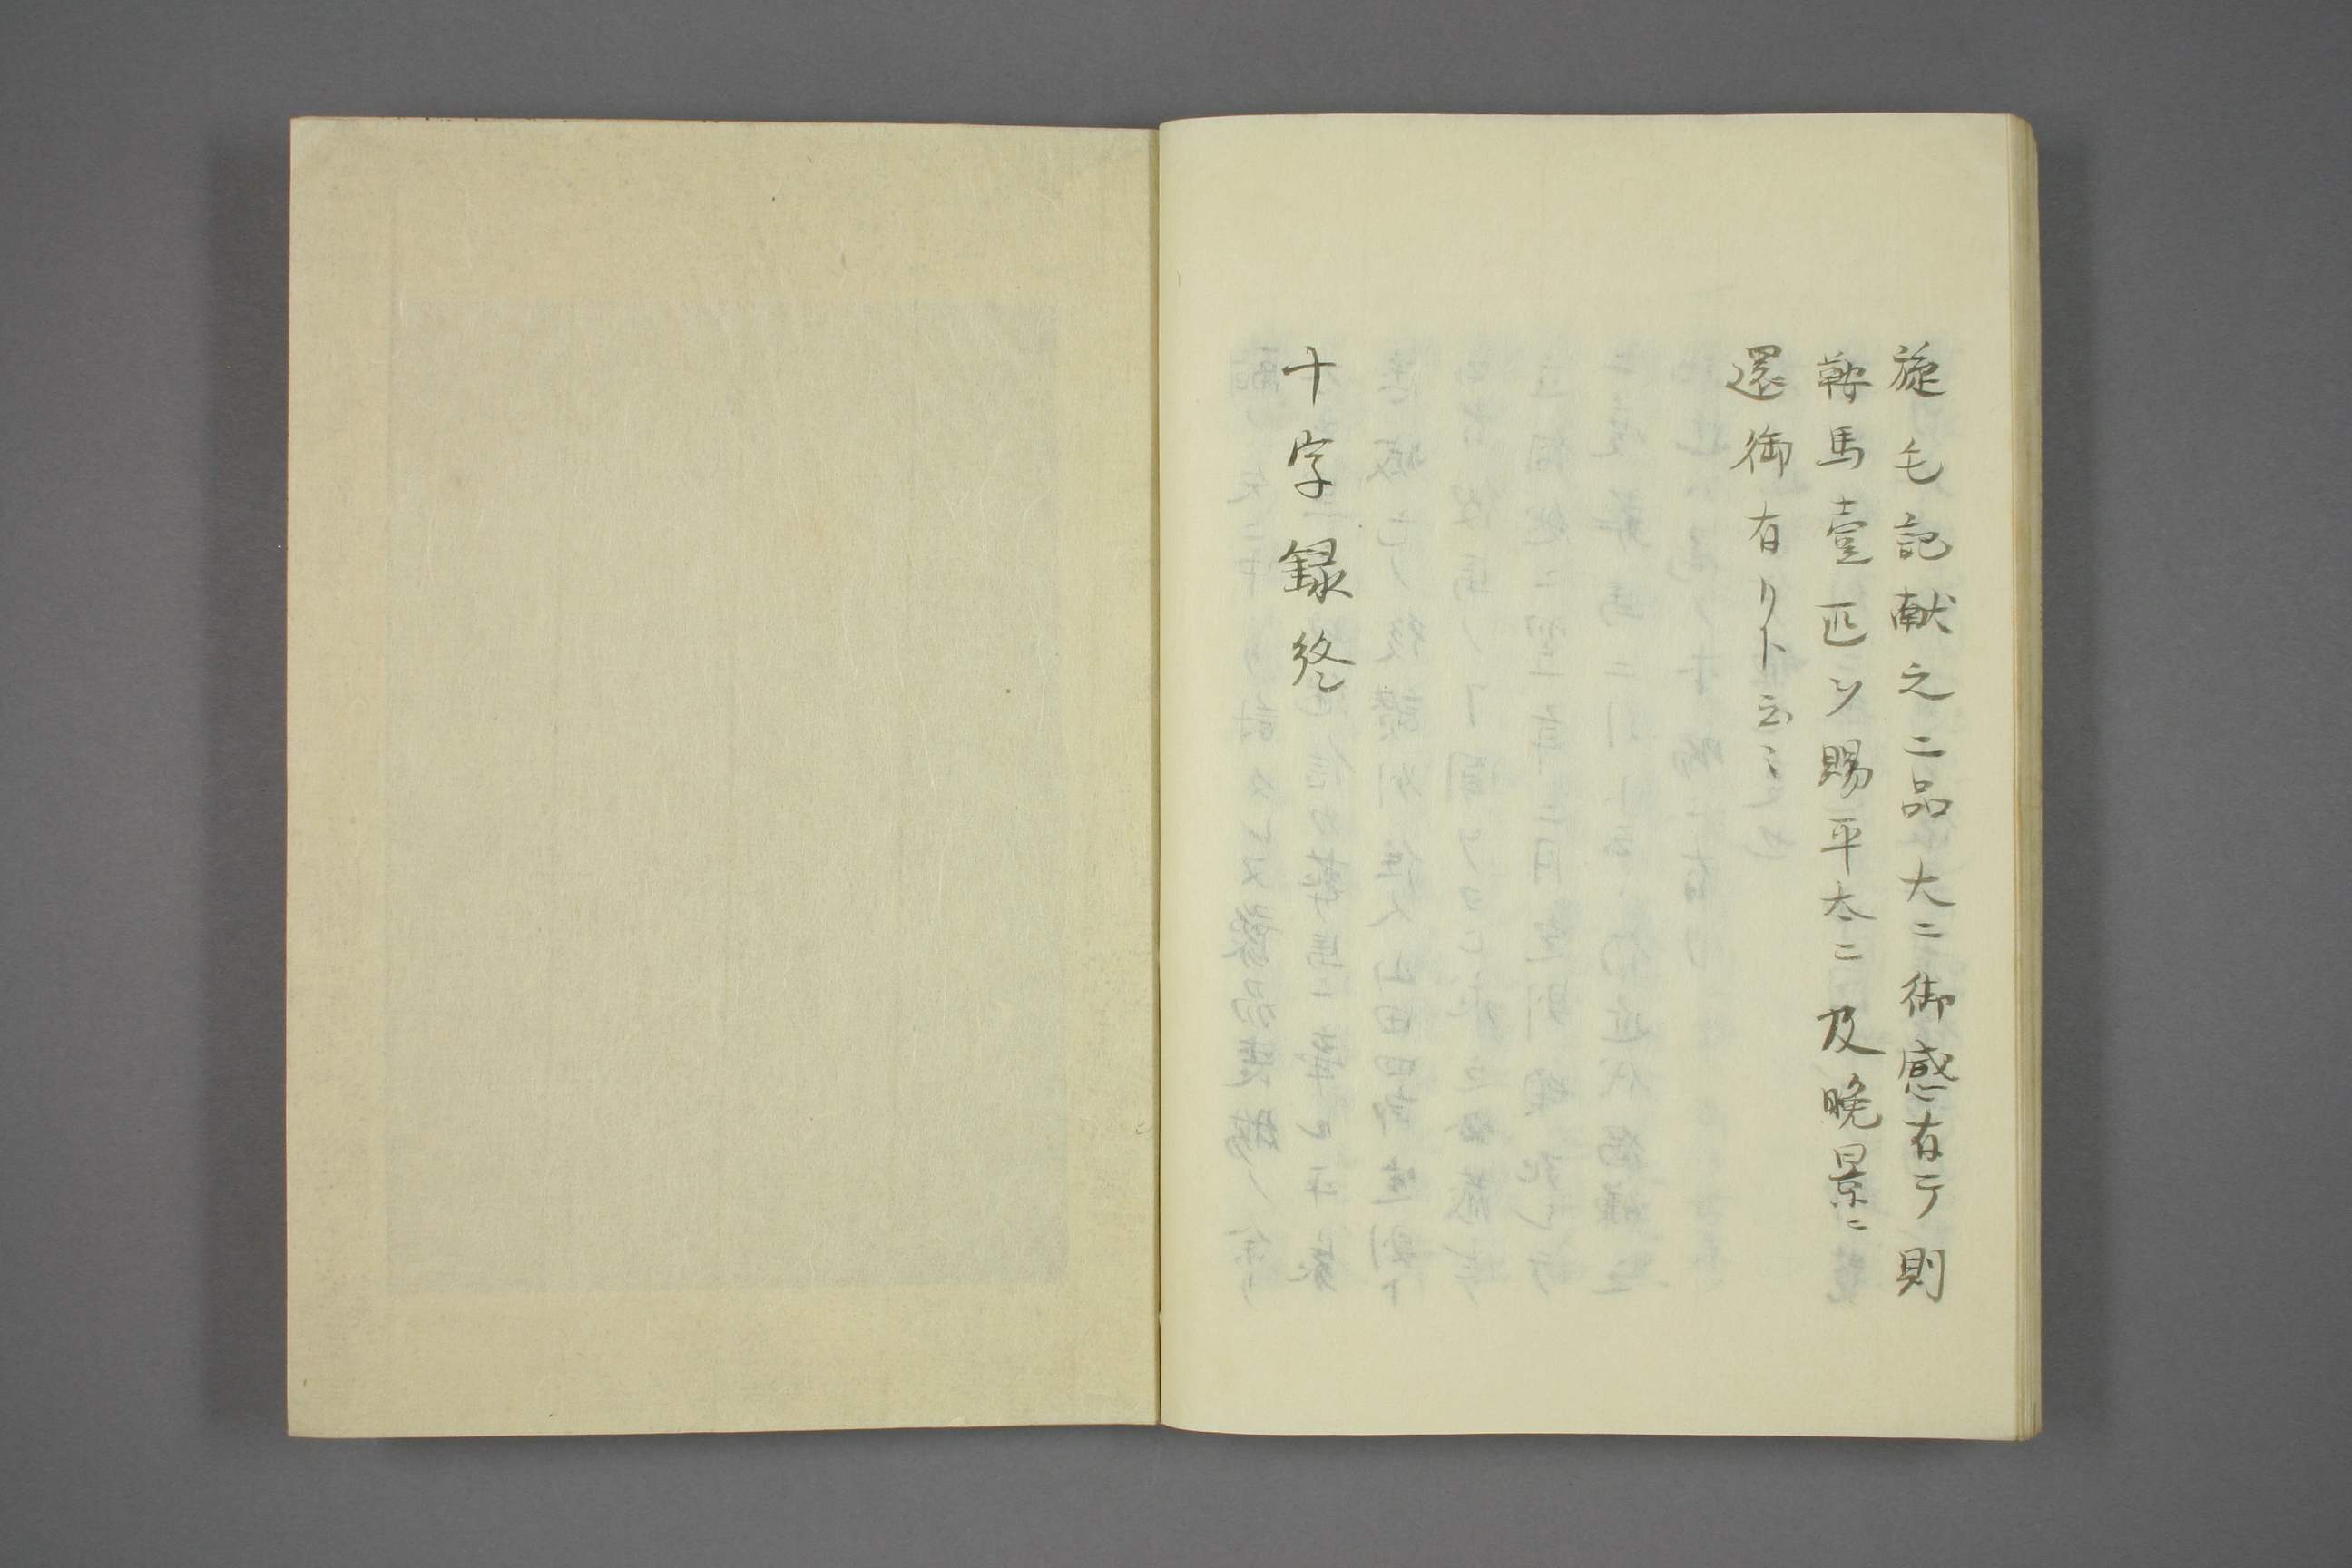 旋毛記献之二品大ニ御感有テ則
鞍馬壹匹ツ賜平太ニ及晩景ニ
還御有リト云〻
十字録終